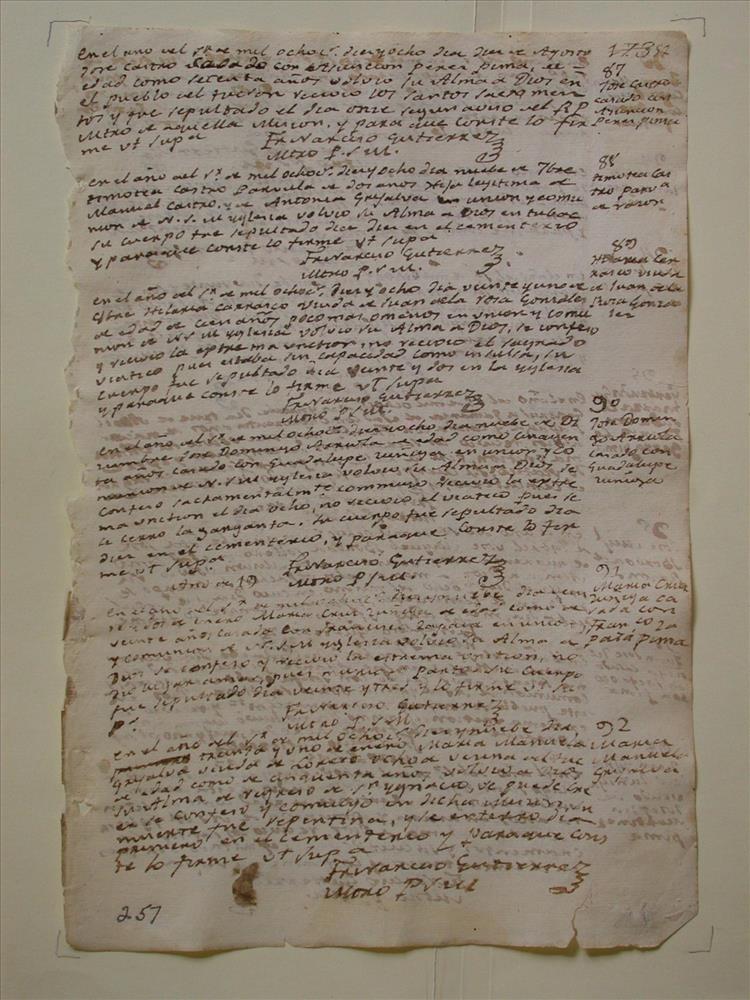 En el año del Sr. de mil ochocs. diez y ocho dia diez de Agosto
Jose Castro casado con Asuncion Perez pima, de
edad como setenta años volvio su Alma a Dios en
el pueblo del Tucson recivio los Santos Sacramen
tos y fue sepultado el dia onze segun aviso del R P
Mtro de aquella Mision, y para que conste lo fir
me ut supa
Fr Narciso Gutierrez
Mtro P. S M.
87
Jose Castro
casado con
Asuncion
Perez pima
En el año del Sr. de mil ochocs. diez y ocho dia nueve de 7bre
Timotea Castro Parvula de dos años Hija legitima de
Manuel Castro, y de Antonia Grijalva en union y comu
nion de N. S. M Yglesia volvio su Alma a Dios en Tubac
su cuerpo fue sepultado dia diez en el cementerio
y para que conste lo firme ut supa
Fr Narciso Gutierrez
Mtro P. S M.
88
Timotea Cas
tro parva
de razon
En el año del Sr. de mil ochocs. diez y ocho dia veinte y uno de
Hilaria Carrasco viuda de Juan de la Rosa Gonzales
de edad de cien años poco mas o menos en union y comu
nion de N S M Yglesia volvio su Alma a Dios, se confeso
y recivio la extrema unction, no recivio el sagrado
viatico pues estaba sin capacidad como insulsa, su
cuerpo fue sepultado dia veinte y dos en la Yglesia
y para que conste lo firme ut supa
Fr Narciso Gutierrez
Mtro P S M.
89
Hilaria Car
rasco viuda
de Juan de la
Rosa Gonza
les
En el año del Sr. de mil ochocs. diez y ocho dia nueve de Di
ziembre Jose Domingo Arriola de edad como cinquen
ta años casado con Guadalupe Zuñiga en union y co
munion de N. S M Yglesia volvio su Alma a Dios, se
confeso sacramentalmte commulgo recivio la extre
ma unction el dia ocho, no recivio el viatico pues se
le cerro la garganta. Su cuerpo fue sepultado dia
diez en el cementerio, y para que conste lo fir
me ut supa
Fr Narciso Gutierrez
Mtro P S M.
90
Jose Domin
go Arriola
casado con
Guadalupe
Zuñiga
Año de 19
En el año del Sr. de mil ochocs. diez y nuebe dia vein
te y dos de Enero Maria Cruz Zuñiga de edad como de
veinte años, casada con Francisco Zapata en union
y comunion de N. S. M Yglesia volvio su Alma a
Dios se confeso y recivio la extrema unction, no
pues murio de parto. Su cuerpo
fue sepultado dia veinte y tres y lo firme ut su
pa
Fr Narciso Gutierrez
Mtro P S M.
91
Maria Cruz
Zuñiga ca
sada con
Franco Za
pata pima
En el año del Sr. de mil ochocs. diez y nuebe dia
treinta y uno de enero, Maria Manuela
Grijalva viuda de Loreto Ochoa vecina del Tuc
de edad como de cinquenta años volvio a Dios
su Alma, de regreso de Sn Ygnacio, se puede cre
er se confeso y comulgo en dicha Mision, su
muerte fue repentina, y se enterro dia
primero en el Cementerio y para que cons
te lo firme ut supa
Fr Narciso Gutierrez
Mtro P S M
92
Maria
Manuela
Grijalva
257